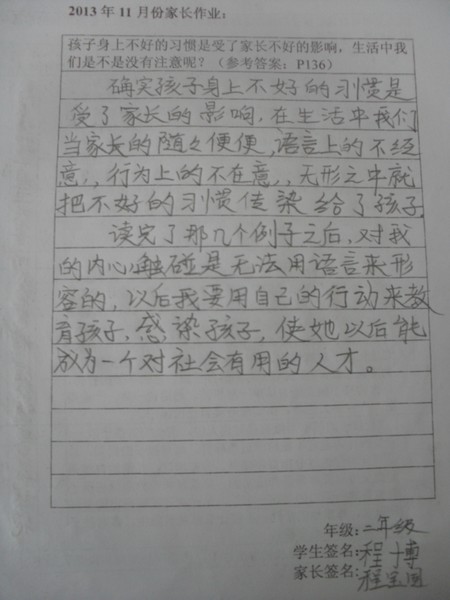 2013 年 11 月份家长作业：
孩子身上不好的习惯是受了家长不好的影响，生活中我
们是不是没有注意呢？（参考答案：P136）
确实孩子身上不好的习惯是
受了家长的影响，在生活中我们
当家长的随々便便，语言上的不经
意，，行为上的不在意，，无形之中就
把不好的习惯传染给了孩子，
读完了那几个例子之后，对我
的内心触碰是无法用语言来形
容的，以后我要用自己的行动来教
育孩子，感染孩子，使她以后能
成为一个对社会有用的人才。
年级：二年级
学生签名：程博
家长签名：程宝国